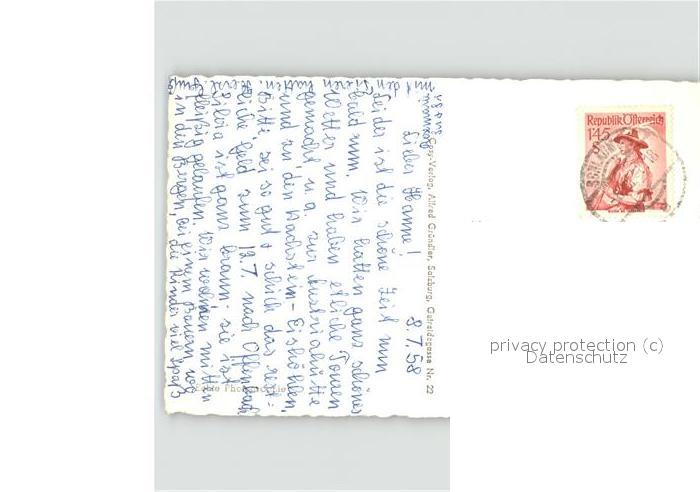 8.7.58
Lieber Hanne!
Leider ist die schöne Zeit nun
bald rum. Wir hatten ganz schönes
Wetter und haben etliche Touren
gemacht, u.a. zur Austriahütte
und zu den Dachstein-Eishöhlen.
Bitte, sei so gut & schick das rest=
liche Geld zum 12.7. nach Offenbach
Silvia ist ganz braun, sie ist
fleißig gelaufen. Wir wohnen mitten
in den Bergen, bei einem Bauern, wo
die Kinder viel Spaß
mit den Tieren hatten
Cosy-Verlag, Alfred Gründler, Salzburg, Getreidegasse Nr. 22
Echte Photographie
Republik Österreich
145
S
privacy protection (c)
Datenschutz